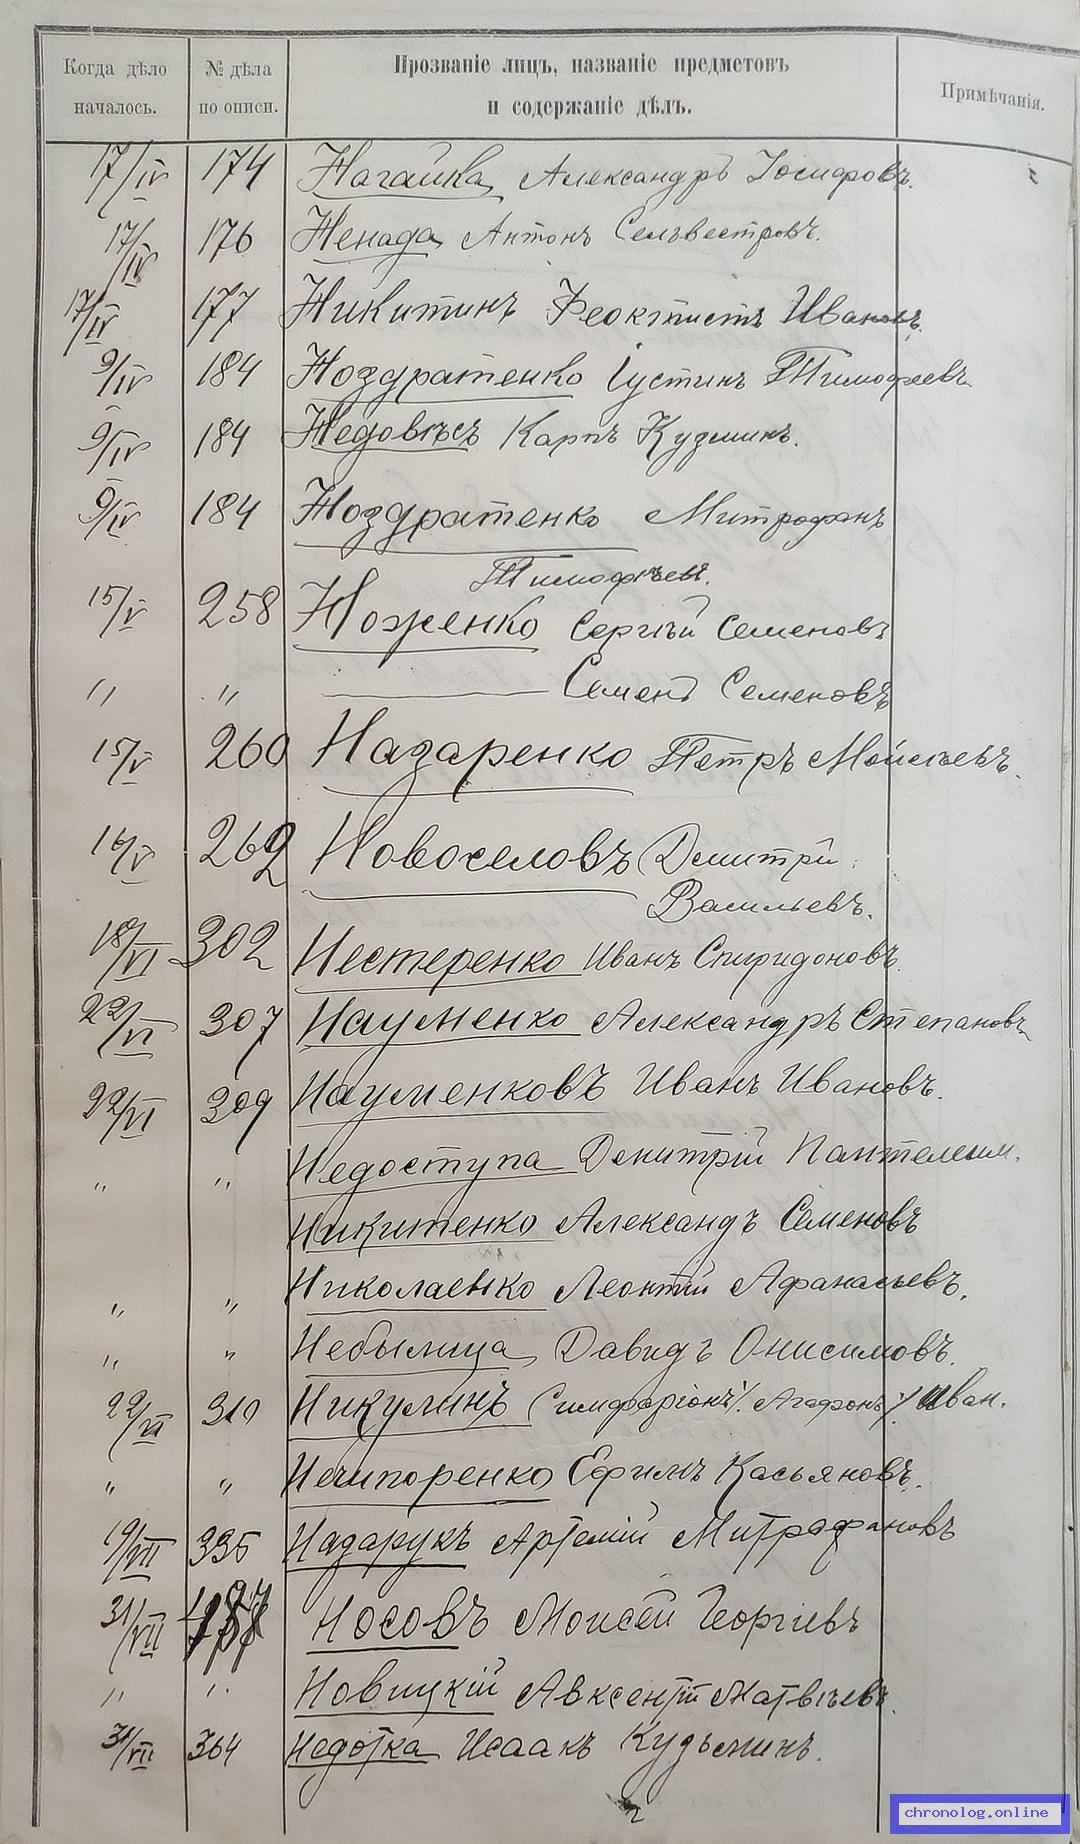 Когда дѣло началось. № дѣла по описи. Прозваніе лицъ, названіе предметовъ и содержаніе дѣлъ. Примѣчанія.
17/IV 174 Нагайка Александръ Іосифовъ.
17/IV 176 Ненада Антонъ Сельвестровъ.
17/IV 177 Никитинъ Феоктистъ Ивановъ.
9/IV 184 Ноздратенко Іустинъ Тимофеевъ
9/IV 184 Недовѣсъ Карпъ Кузминъ.
9/IV 184 Ноздратенко Митрофанъ
Тимофѣевъ.
15/V 258 Ноженко Сергѣй Семеновъ
" " — Семенъ Семеновъ
15/V 260 Назаренко Петръ Мойсѣевъ.
16/V 262 Новоселовъ Дмитрій
Васильевъ.
18/VI 302 Нестеренко Иванъ Спиридоновъ
22/VI 307 Науменко Александръ Степановъ
22/VI 309 Науменковъ Иванъ Ивановъ.
" " Недоступа Димитрій Пантелеим.
Никитенко Александъ Семеновъ
" " Николаенко Леонтій Афанасьевъ.
" " Небылица Давидъ Онисимовъ.
22/VI 310 Никулинъ Симфоріонъ /. Агафонъ ./ Иван.
" " Нечипоренко Ефимъ Касьяновъ.
19/VII 335 Надарукъ Артемій Митрофановъ
31/VII Носовъ Моисей Георгіевъ
" " Новицкій Авксентій Матвѣевъ.
31/VII 364 Недотка Исаакъ Кузьминъ.
chronolog.online